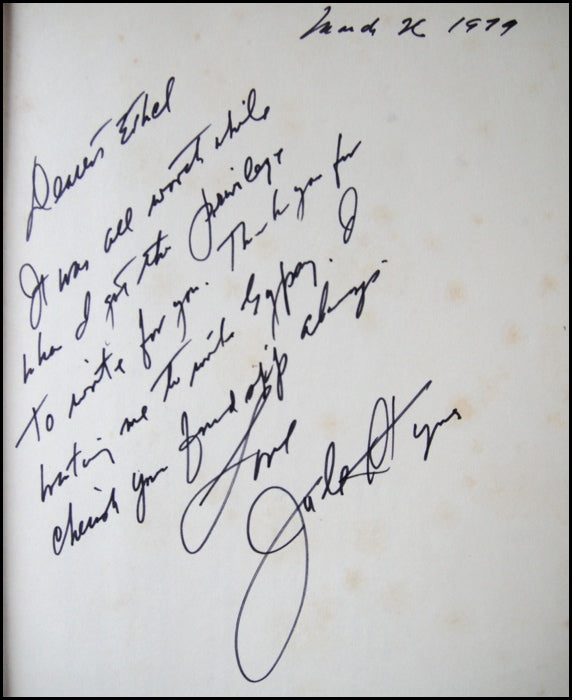 March 26 1979
Dearest Ethel
It was all worth while
when I got the privilege
to write for you. Thank you for
wanting me to write Gypsy. I
cherish your friendship always.
Love
Jule Styne